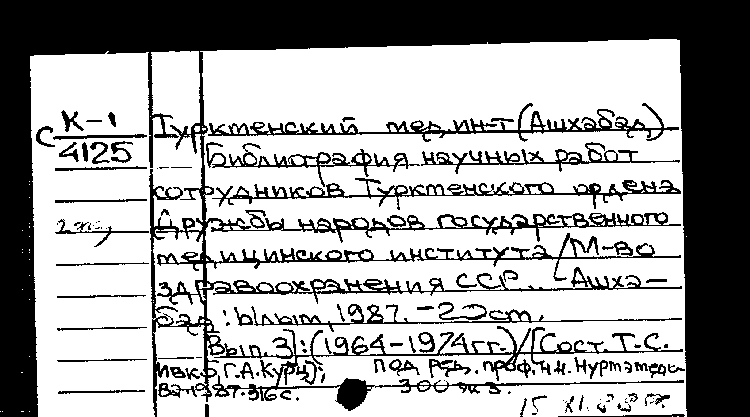 С К-1
4125
Туркменский мед. ин-т (Ашхабад)
Библиография научных работ
сотрудников Туркменского ордена
Дружбы народов государственного
медицинского института / М-во
здравоохранения ССР.. - Ашха-
бад : Ылым, 1987. - 22 см.
Вып. 3] : (1964-1974 гг.) / [Сост. Т. С.
Г. А. Курц]; под ред. проф. Ч. Н.
1987. 316 с. 300 экз.
15 XI. 88